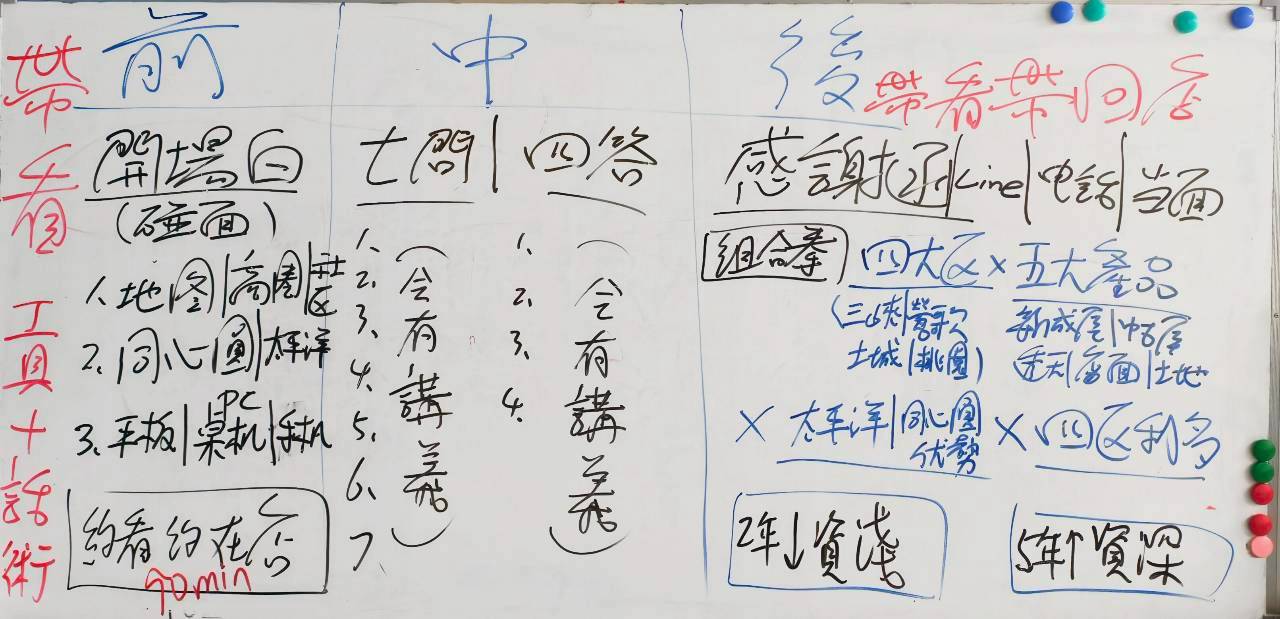 帶看 工具+話術
前
開場白
(碰面)
1、地图|商圈|社区
2、同心圓|太平洋
3、平板|桌机PC|手机
約看約在店
90min
中
七問|四答
1、
2、
3、
4、
5、
6、
7
(会有講義)
1、
2、
3、
4、
(会有講義)
後
帶看帶回店
感謝函|Line|电話|当面
组合拳
四大区×五大產品
(三峽|鶯歌
土城|桃園)
新成屋|中古屋
透天|店面|土地
×太平洋|同心圓优勢×四区利多
2年↓資淺
5年↑資深